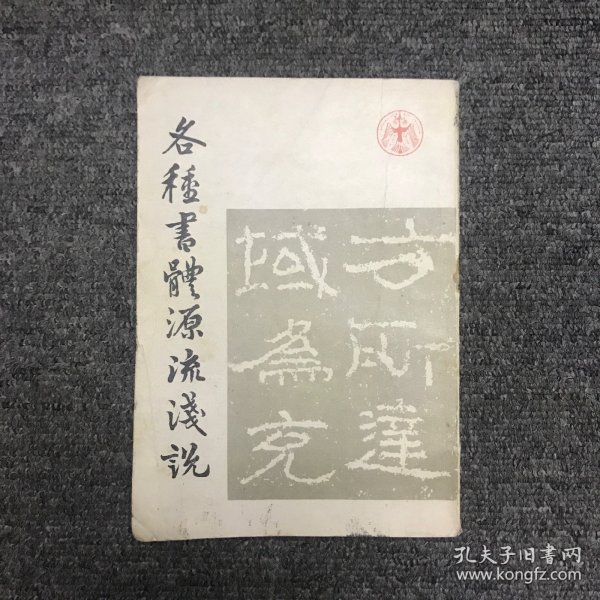 各種書體源流淺說
方所達
域為克
孔夫子旧書网
www.kongfz.com